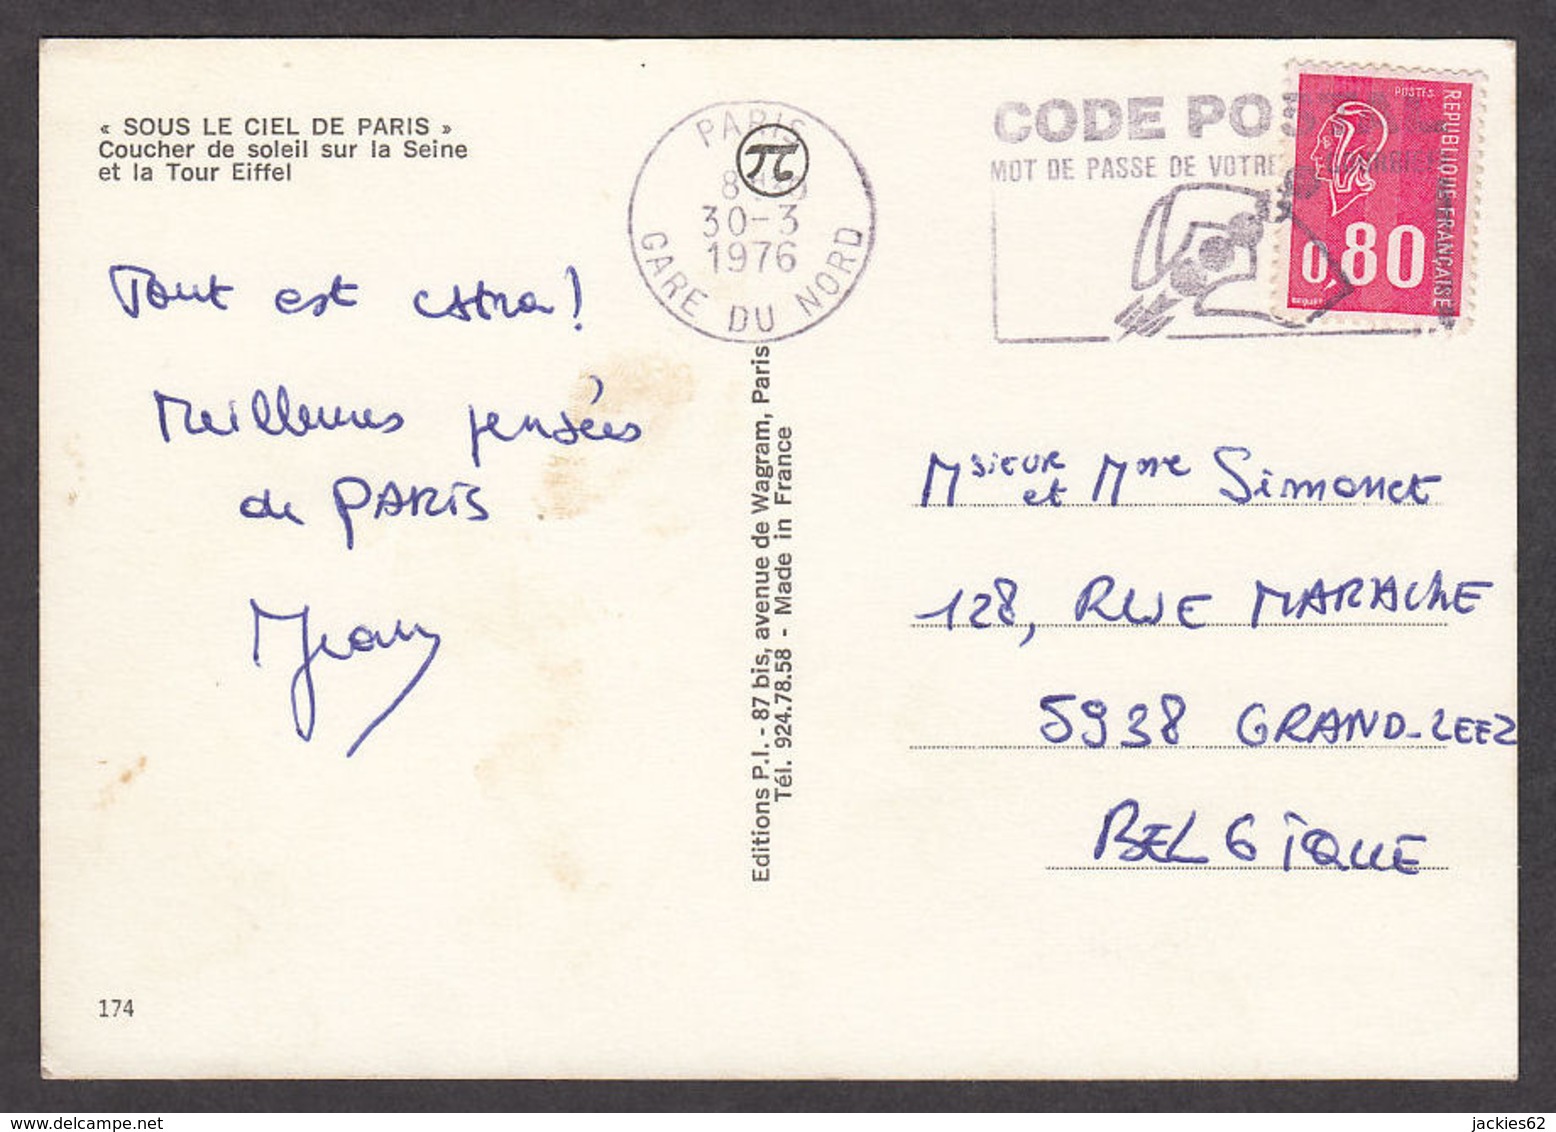 « SOUS LE CIEL DE PARIS »
Coucher de soleil sur la Seine
et la Tour Eiffel
Tout est extra!
Meilleures pensées
de PARIS
Jean
174
PARIS
30-3
1976
GARE DU NORD
Editions P.I. - 87 bis, avenue de Wagram, Paris
Tél. 924.78.58 - Made in France
CODE POSTAL
MOT DE PASSE DE VOTRE COURRIER
POSTES
REPUBLIQUE FRANÇAISE
0,80
BEQUET
Msieur et Mme Simonet
128, RUE MARACHE
5938 GRAND-LEEZ
BELGIQUE
jackies62